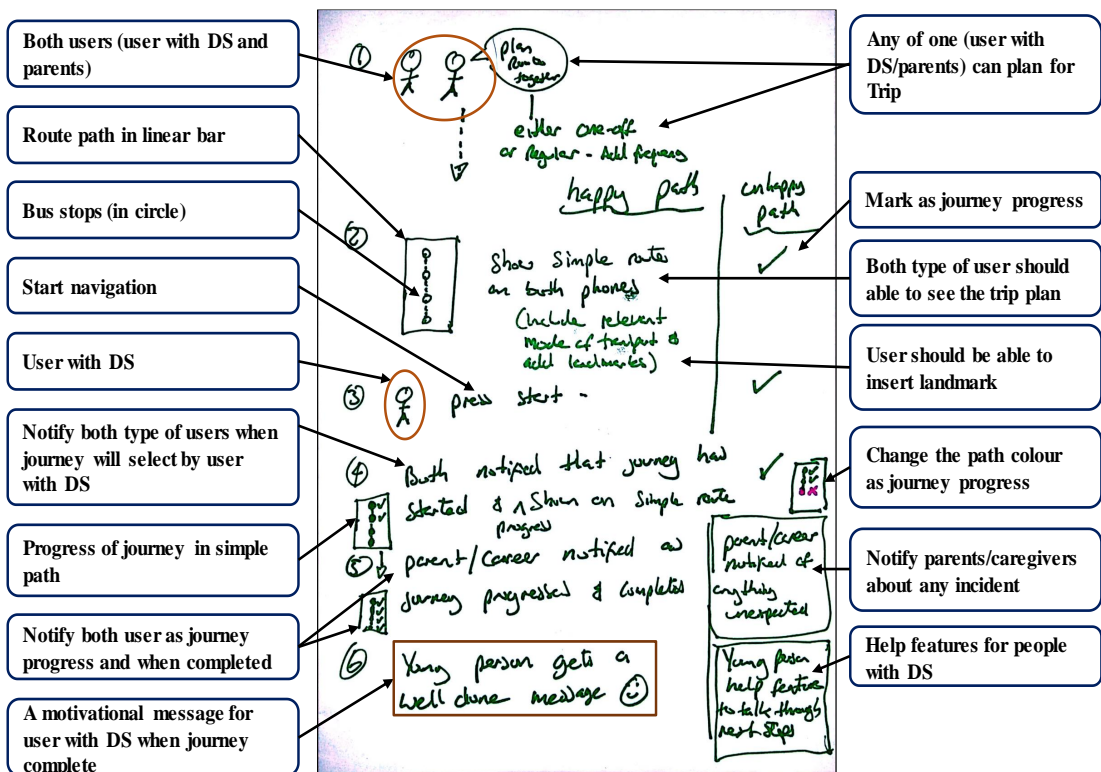 Both users (user with DS and
parents)
Route path in linear bar
Bus stops (in circle)
Start navigation
User with DS
Notify both type of users when
journey will select by user
with DS
Progress of journey in simple
path
Notify both user as journey
progress and when completed
A motivational message for
user with DS when journey
complete
①
plan
Route
together
either one-off
or Regular - Add frequency
happy path
unhappy
path
②
Show Simple route
on both phones
(include relevant
Mode of transport &
add landmarks)
③
press start -
④
Both notified that journey has
Started & ^ Shown on Simple route
progress
⑤
parent/career notified as
journey progressed & completed
parent/career
notified of
anything
unexpected
⑥
Young person gets a
well done message
Young person
help feature
to talk through
next steps
Any of one (user with
DS/parents) can plan for
Trip
Mark as journey progress
Both type of user should
able to see the trip plan
User should be able to
insert landmark
Change the path colour
as journey progress
Notify parents/caregivers
about any incident
Help features for people
with DS